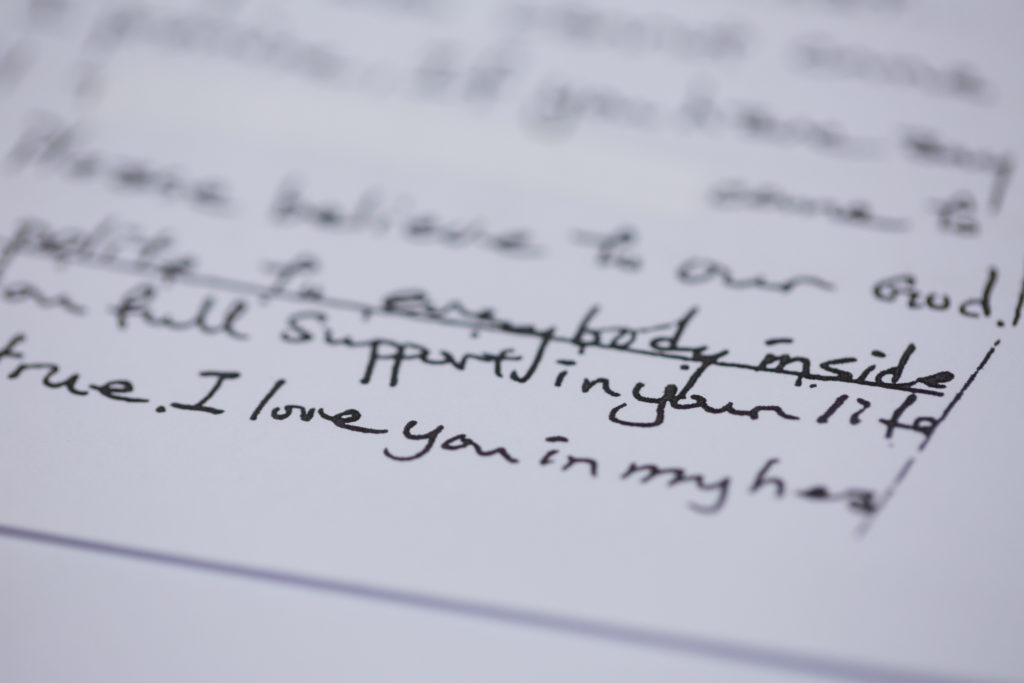 if you have any
came to
Please believe to our God.
polite to everybody inside
on full support, in your life
true. I love you in my hea